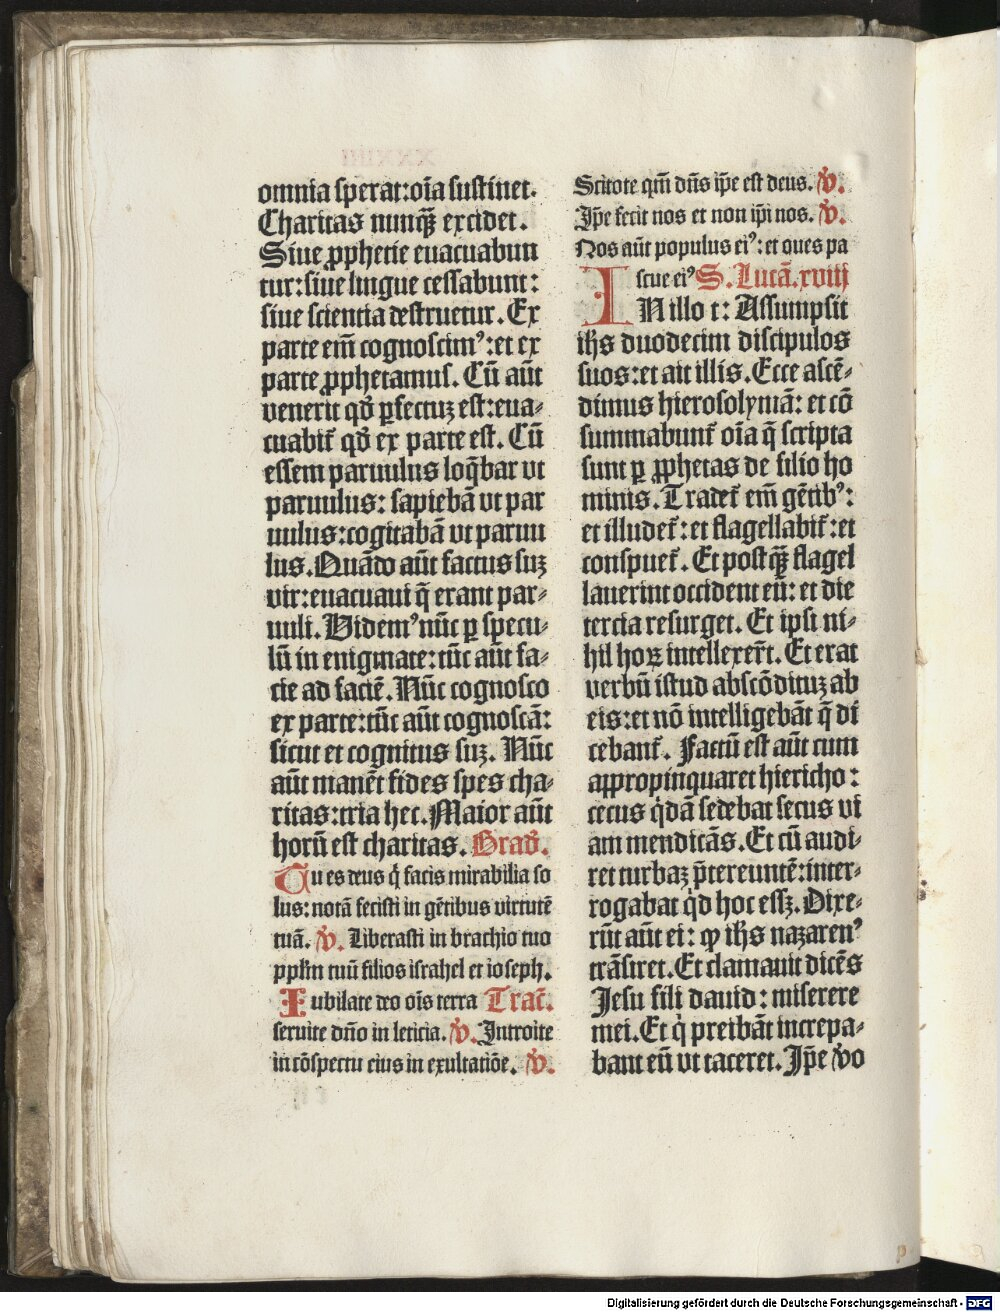 omnia sperat:oīa sustinet.
Charitas nunqꝫ̄ excidet.
Siue ꝓphetie euacuabun
tur:siue lingue cessabunt:
siue scientia destruetur. Ex
parte em̄ cognoscimꝰ:et ex
parte ꝓphetamus. Cū aūt
venerit qd̄ ꝑfectuꝫ est:eua⸗
cuabit᷑ qd̄ ex parte est. Cū
essem paruulus loq̄bar vt
paruulus: sapiebā vt par
uulus:cogitabā vt paruu
lus. Quādo aūt factus suꝫ
vir:euacuaui q̄ erant par⸗
uuli. Videmꝰ nūc ꝑ specu⸗
lū in enigmate:tūc aūt fa⸗
cie ad faciē. Nūc cognosco
ex parte:tūc aūt cognoscā:
sicut et cognitus suꝫ. Nūc
aūt manēt fides spes cha⸗
ritas:tria hec. Maior aūt
horū est charitas. Grad̄.
Tu es deus q̇ facis mirabilia so
lus: notā fecisti in gētibus virtutē
tuā. v̄. Liberasti in brachio tuo
ppl̄m tuū filios israhel et ioseph.
Iubilate deo oīs terra Trac̄.
seruite dn̄o in leticia. v̄. Introite
in cōspectu eius in exultatiōe. v̄.
Scitote qm̄ dn̄s ip̄e est deus. v̄.
Ip̄e fecit nos et non ip̄i nos. v̄.
Nos aūt populus eiꝰ: et oues pa
scue eiꝰ S. Lucā. xviij
IN illo t: Assumpsit
ih̄s duodecim discipulos
suos:et ait illis. Ecce ascē⸗
dimus hierosolymā: et cō
summabunt᷑ oīa q̄ scripta
sunt ꝑ ꝓphetas de filio ho
minis. Tradet᷑ em̄ gētibꝰ:
et illudet᷑: et flagellabit᷑:et
conspuet᷑. Et postqꝫ̄ flagel
lauerint occident eū: et die
tercia resurget. Et ipsi ni⸗
hil hoꝝ intellexer̄t. Et erat
verbū istud abscōdituꝫ ab
eis:et nō intelligebāt q̄ di
cebant᷑. Factū est aūt cum
appropinquaret hiericho:
cecus q̇dā sedebat secus vi
am mendicās. Et cū audi⸗
ret turbaꝫ p̄tereuntē:inter⸗
rogabat qḋ hoc essꝫ. Dixe⸗
rūt aūt ei: ꝙ ih̄s nazarenꝰ
trāsiret. Et clamauit dicēs
Jesu fili dauid: miserere
mei. Et q̇ preibāt increpa⸗
bant eū vt taceret. Ip̄e v̄o
Digitalisierung gefördert durch die Deutsche Forschungsgemeinschaft - DFG